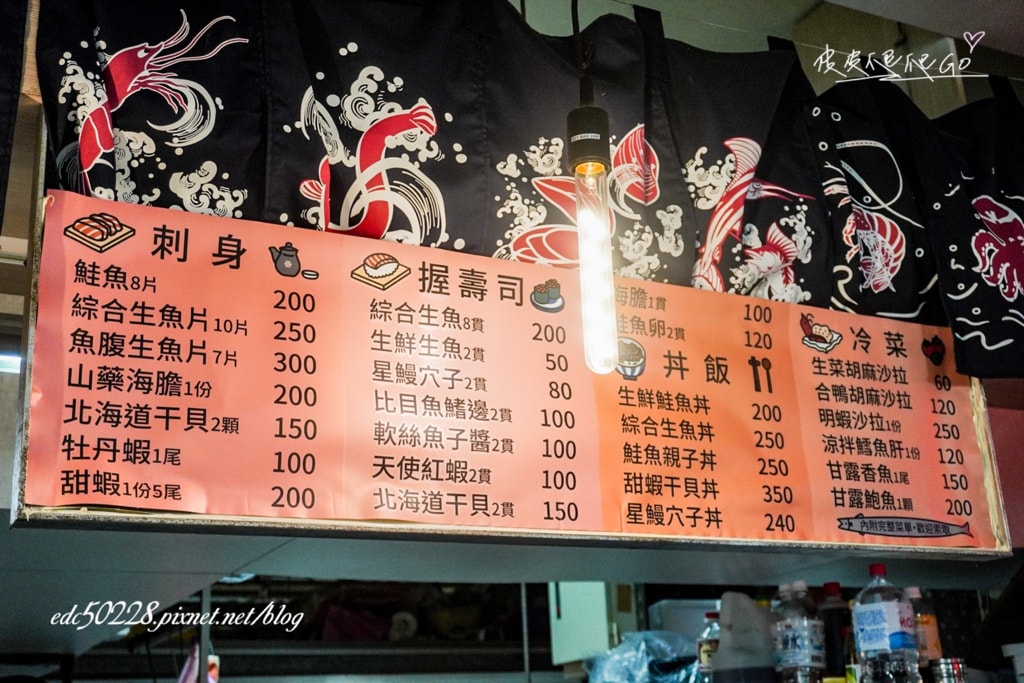 皮皮爬爬GO
刺身
鮭魚8片 200
綜合生魚片10片 250
魚腹生魚片7片 300
山藥海膽1份 200
北海道干貝2顆 150
牡丹蝦1尾 100
甜蝦1份5尾 200
握壽司
綜合生魚8貫 200
生鮮生魚2貫 50
星鰻穴子2貫 80
比目魚鰭邊2貫 100
軟絲魚子醬2貫 100
天使紅蝦2貫 100
北海道干貝2貫 150
海膽1貫 100
鮭魚卵2貫 120
丼飯
生鮮鮭魚丼 200
綜合生魚丼 250
鮭魚親子丼 250
甜蝦干貝丼 350
星鰻穴子丼 240
冷菜
生菜胡麻沙拉 60
合鴨胡麻沙拉 120
明蝦沙拉1份 250
涼拌鱈魚肝1份 120
甘露香魚1尾 150
甘露鮑魚1顆 200
內附完整菜單,歡迎索取
edc50228.pixnet.net/blog